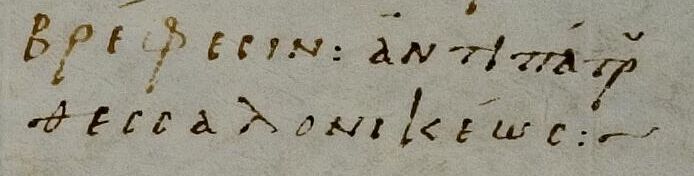 βρέφεσιν: ἀντιπάτρ
θεσσαλονικέως:~